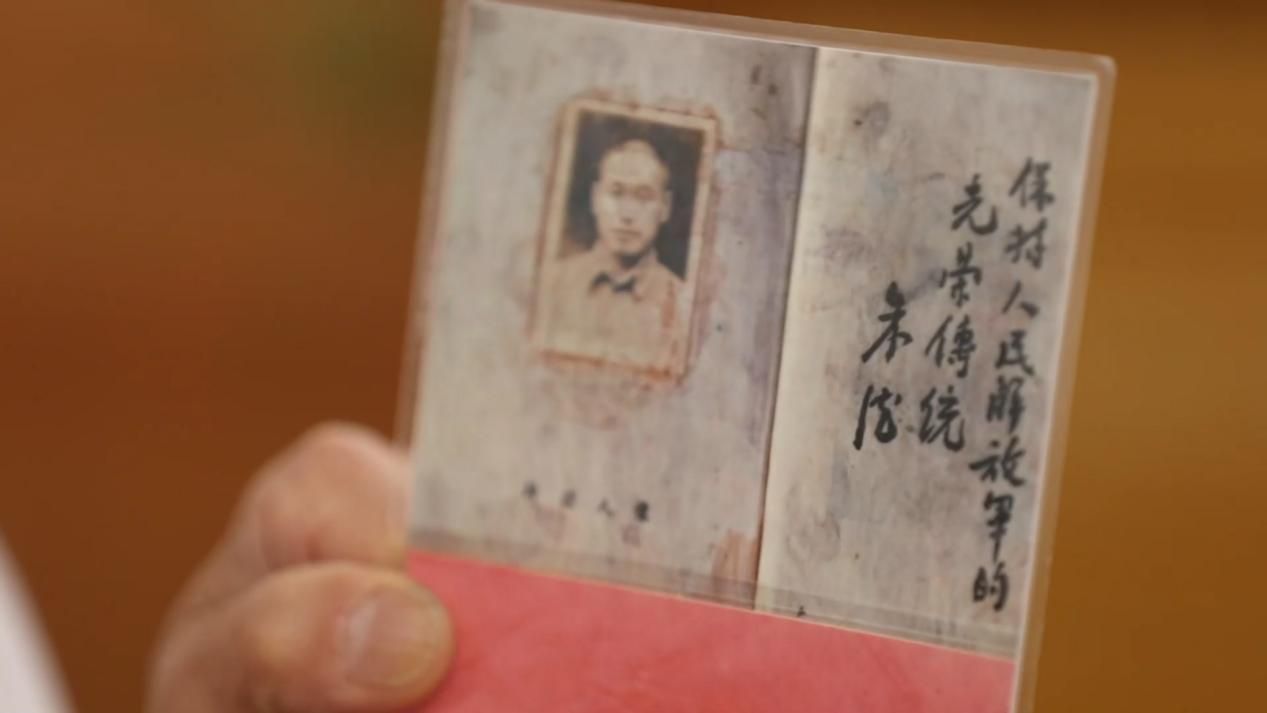 保持人民解放軍的
光荣傳統
朱德